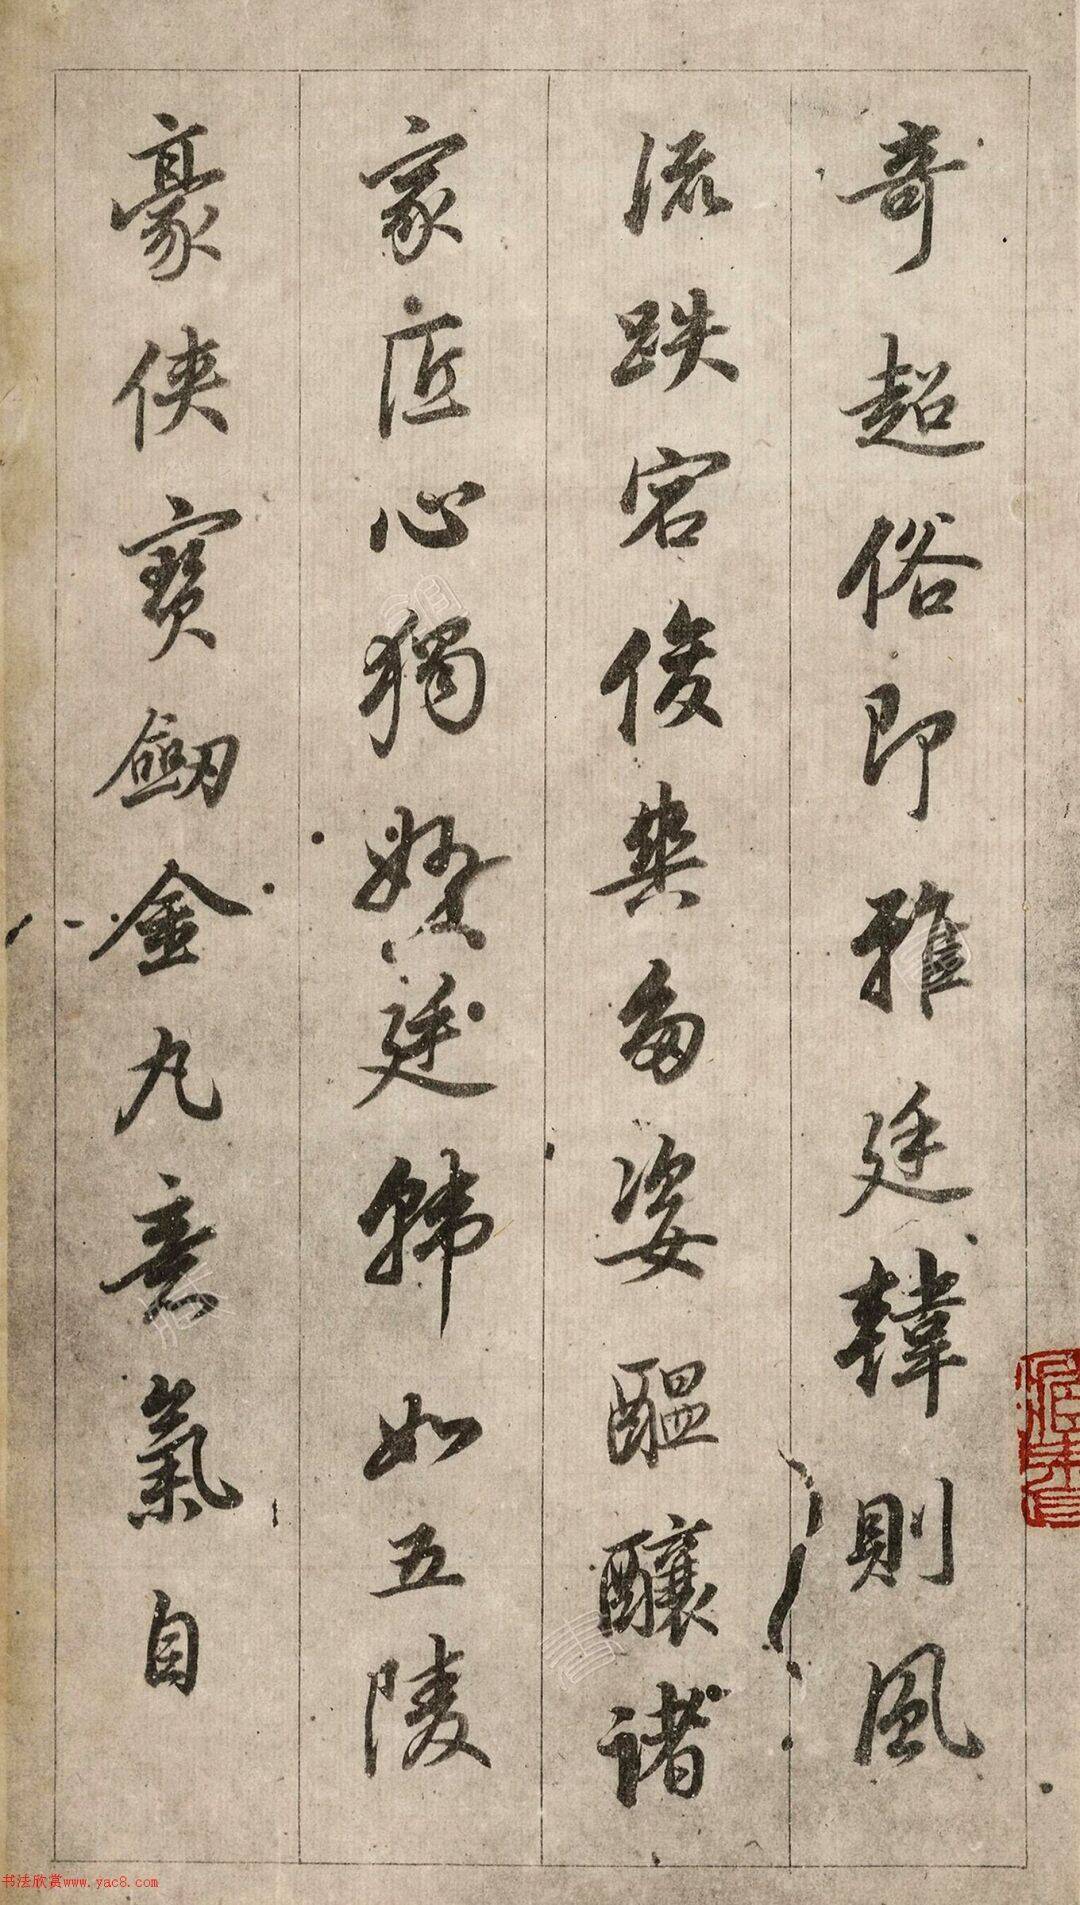 奇超俗即雅廷韓則風
流跌宕俊爽多姿醞釀諸
家匠心獨粲廷韓如五陵
豪俠寶劒金丸意氣自
书法欣赏www.yac8.com